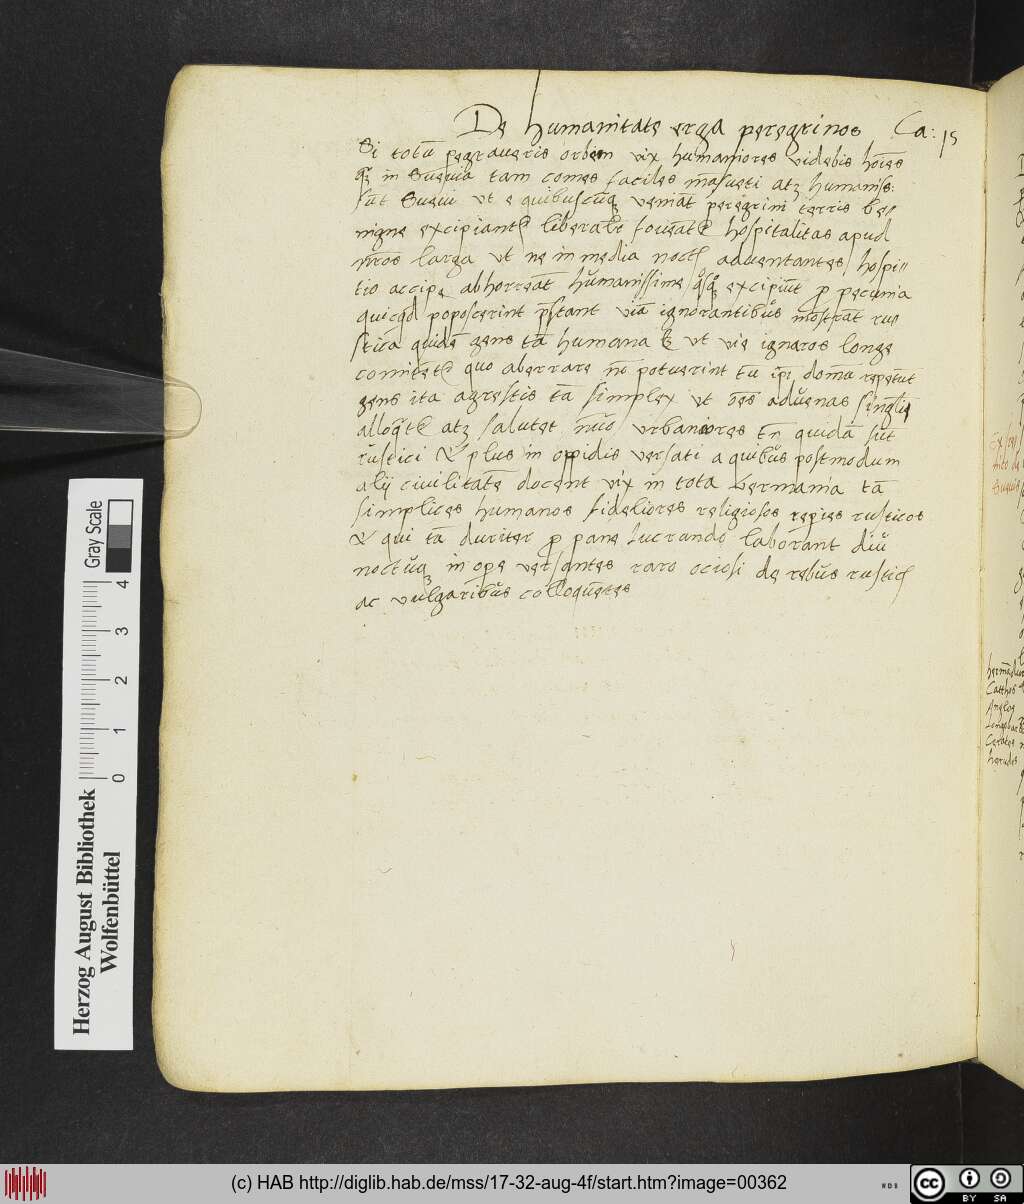 De humanitate erga peregrinos Ca: 15
Si totū pegraueris orbem vix humaniores videbis hoīes
qȝ in Sueuia tam comes faciles māsueti atqȝ humanisſ:
sūt Sueui vt e quibuscūqȝ veniāt peregrini terris be⸗
nigne excipiant liberalit foueāt hospitalitas apud
nr̄os larga vt ne in media noct aduentantes hospi⸗
tio accipe abhorreāt humanissime excipiūt p pecunia
quicqd poposcerint p̄stant viā ignorantibus mōstrāt rus
sticā quidē gens tā humana ē vt vie ignaros longe
comitēt quo aberrare nō potuerint tū ip̄i domū repetūt
gens ita agrestis tā simplex vt oēs aduenas
alloqt atqȝ salutet urbaniores tn̄ quidā sūt
rustici & plus in oppidis versati a quibus postmodum
alij ciuilitatē docent vix in tota Germania tā
simplices humanos fideliores religiosos repies rusticos
& qui tā duriter p pane lucrando laborant diu
noctuqȝ in ope versantes raro ociosi de rebus rustic
ac vulgaribus colloquētes
hermēdu
Catthos
Anglos
Longobar
Cerates
herudes
Herzog August Bibliothek
Wolfenbüttel
Gray Scale
0 1 2 3 4
(c) HAB http://diglib.hab.de/mss/17-32-aug-4f/start.htm?image=00362
WDB
cc BY SA